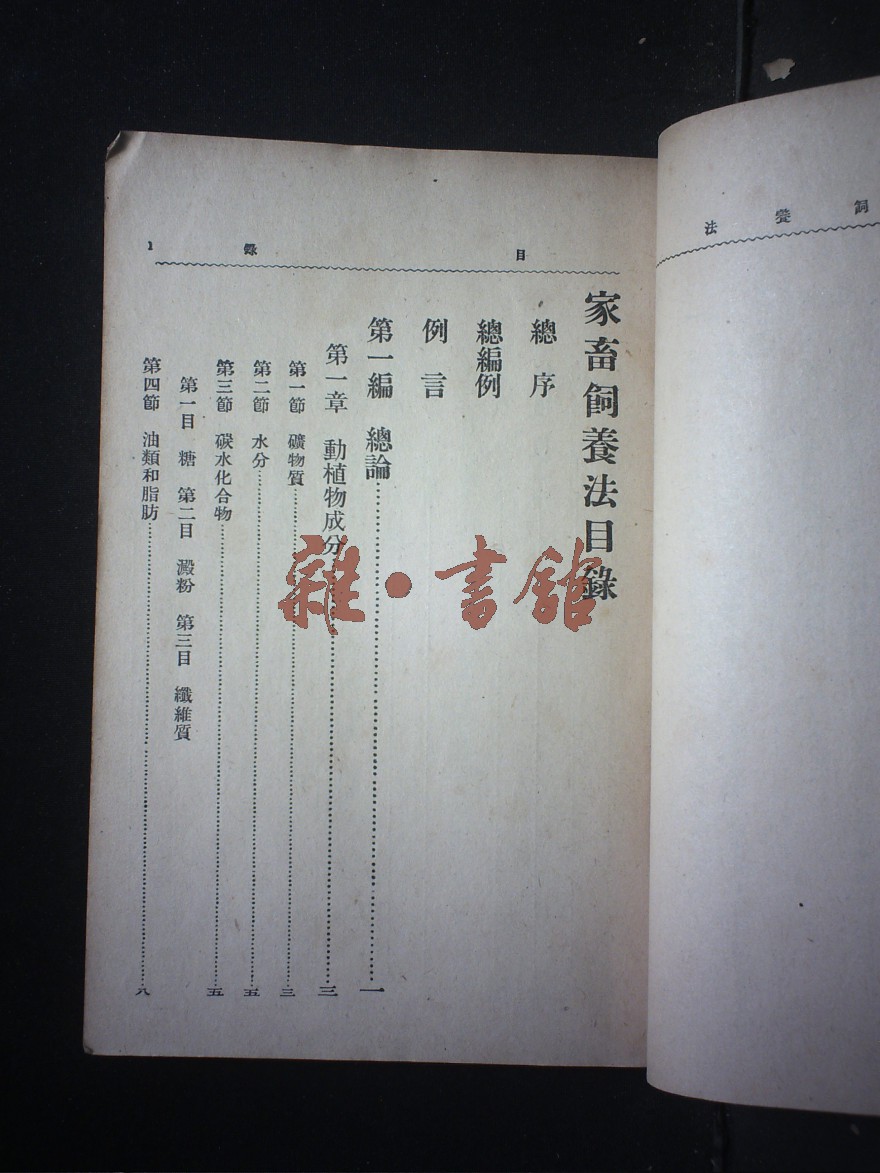 飼養法
目錄 1
家畜飼養法目錄
總序
總編例
例言
第一編 總論……一
第一章 動植物成分……三
第一節 礦物質……三
第二節 水分……五
第三節 碳水化合物……五
第一目 糖 第二目 澱粉 第三目 纖維質
第四節 油類和脂肪……八
雜·書館